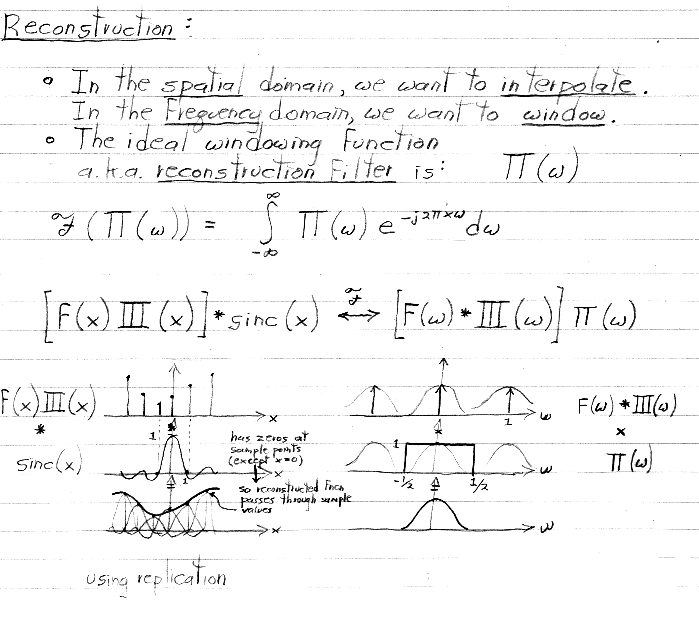 Reconstruction:
• In the spatial domain, we want to interpolate.
In the Frequency domain, we want to window.
• The ideal windowing function
a.k.a. reconstruction Filter is: Π(ω)
ℱ(Π(ω)) = ∫_{-∞}^{∞} Π(ω) e^{-j2πxω} dω
[F(x) III(x)] * sinc(x) ⟷^ℱ [F(ω) * III(ω)] Π(ω)
F(x) III(x) x 1 ω F(ω) * III(ω)
* * * ×
sinc(x) 1 1 x 1 -1/2 1/2 ω Π(ω)
has zeros at
sample points
(except x=0)
= =
so reconstructed fncn
passes through sample
values
x ω
using replication